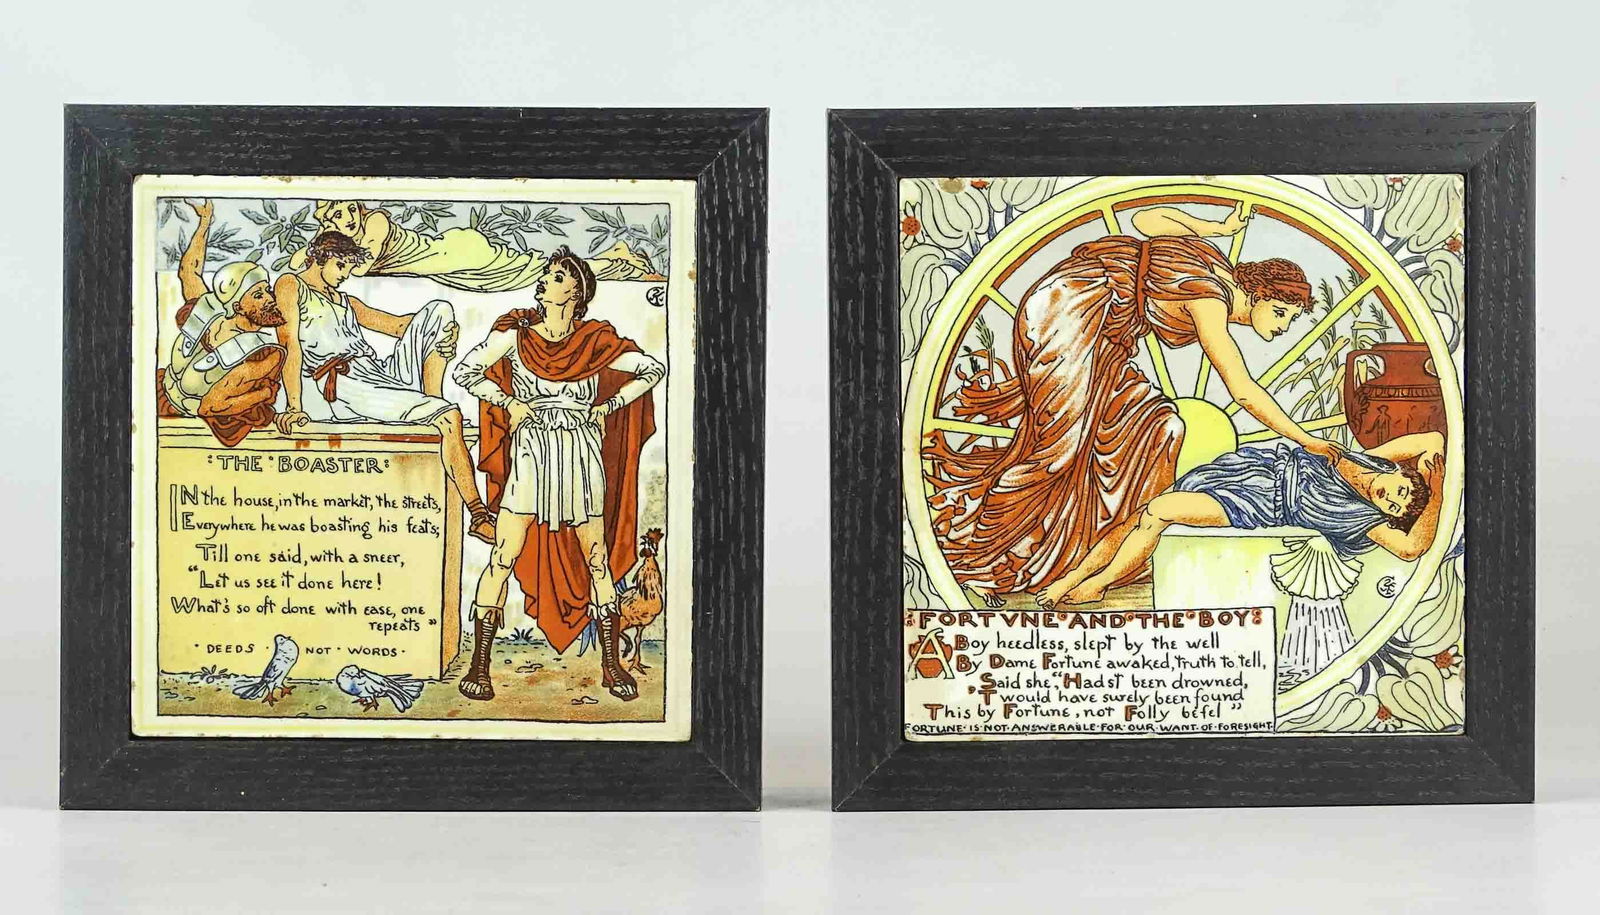 THE BOASTER:
IN the house, in the market, the streets,
Everywhere he was boasting his feats;
Till one said, with a sneer,
"Let us see it done here!
What's so oft done with ease, one
repeats"
· DEEDS · NOT · WORDS ·
:FORTVNE·AND·THE·BOY:
A Boy heedless, slept by the well
By Dame Fortune awaked, truth to tell,
Said she, "Hadst been drowned,
'Twould have surely been found
This by Fortune, not Folly befel"
FORTUNE·IS·NOT·ANSWERABLE·FOR·OUR·WANT·OF·FORESIGHT·